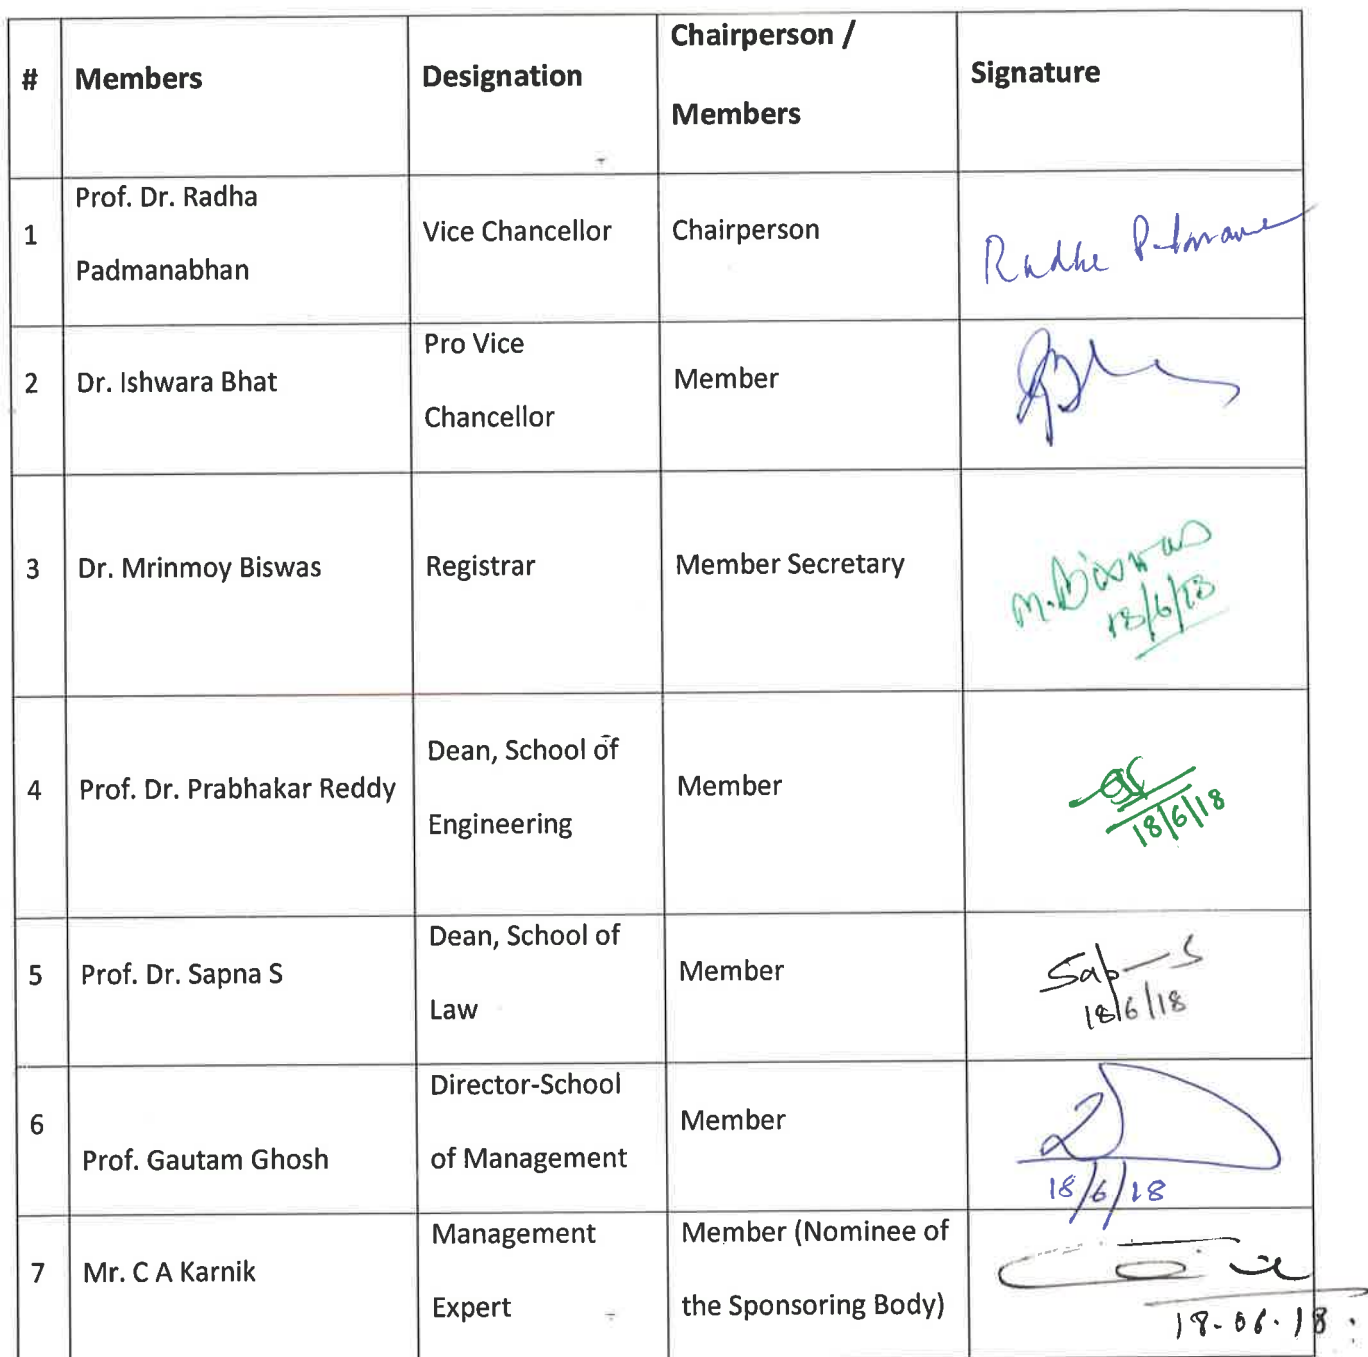 # Members Designation Chairperson / Members Signature
1 Prof. Dr. Radha Padmanabhan Vice Chancellor Chairperson Radha
2 Dr. Ishwara Bhat Pro Vice Chancellor Member
3 Dr. Mrinmoy Biswas Registrar Member Secretary M. Biswas
18/6/18
4 Prof. Dr. Prabhakar Reddy Dean, School of Engineering Member
18/6/18
5 Prof. Dr. Sapna S Dean, School of Law Member
18/6/18
6 Prof. Gautam Ghosh Director-School of Management Member
18/6/18
7 Mr. C A Karnik Management Expert Member (Nominee of the Sponsoring Body)
18-06-18.